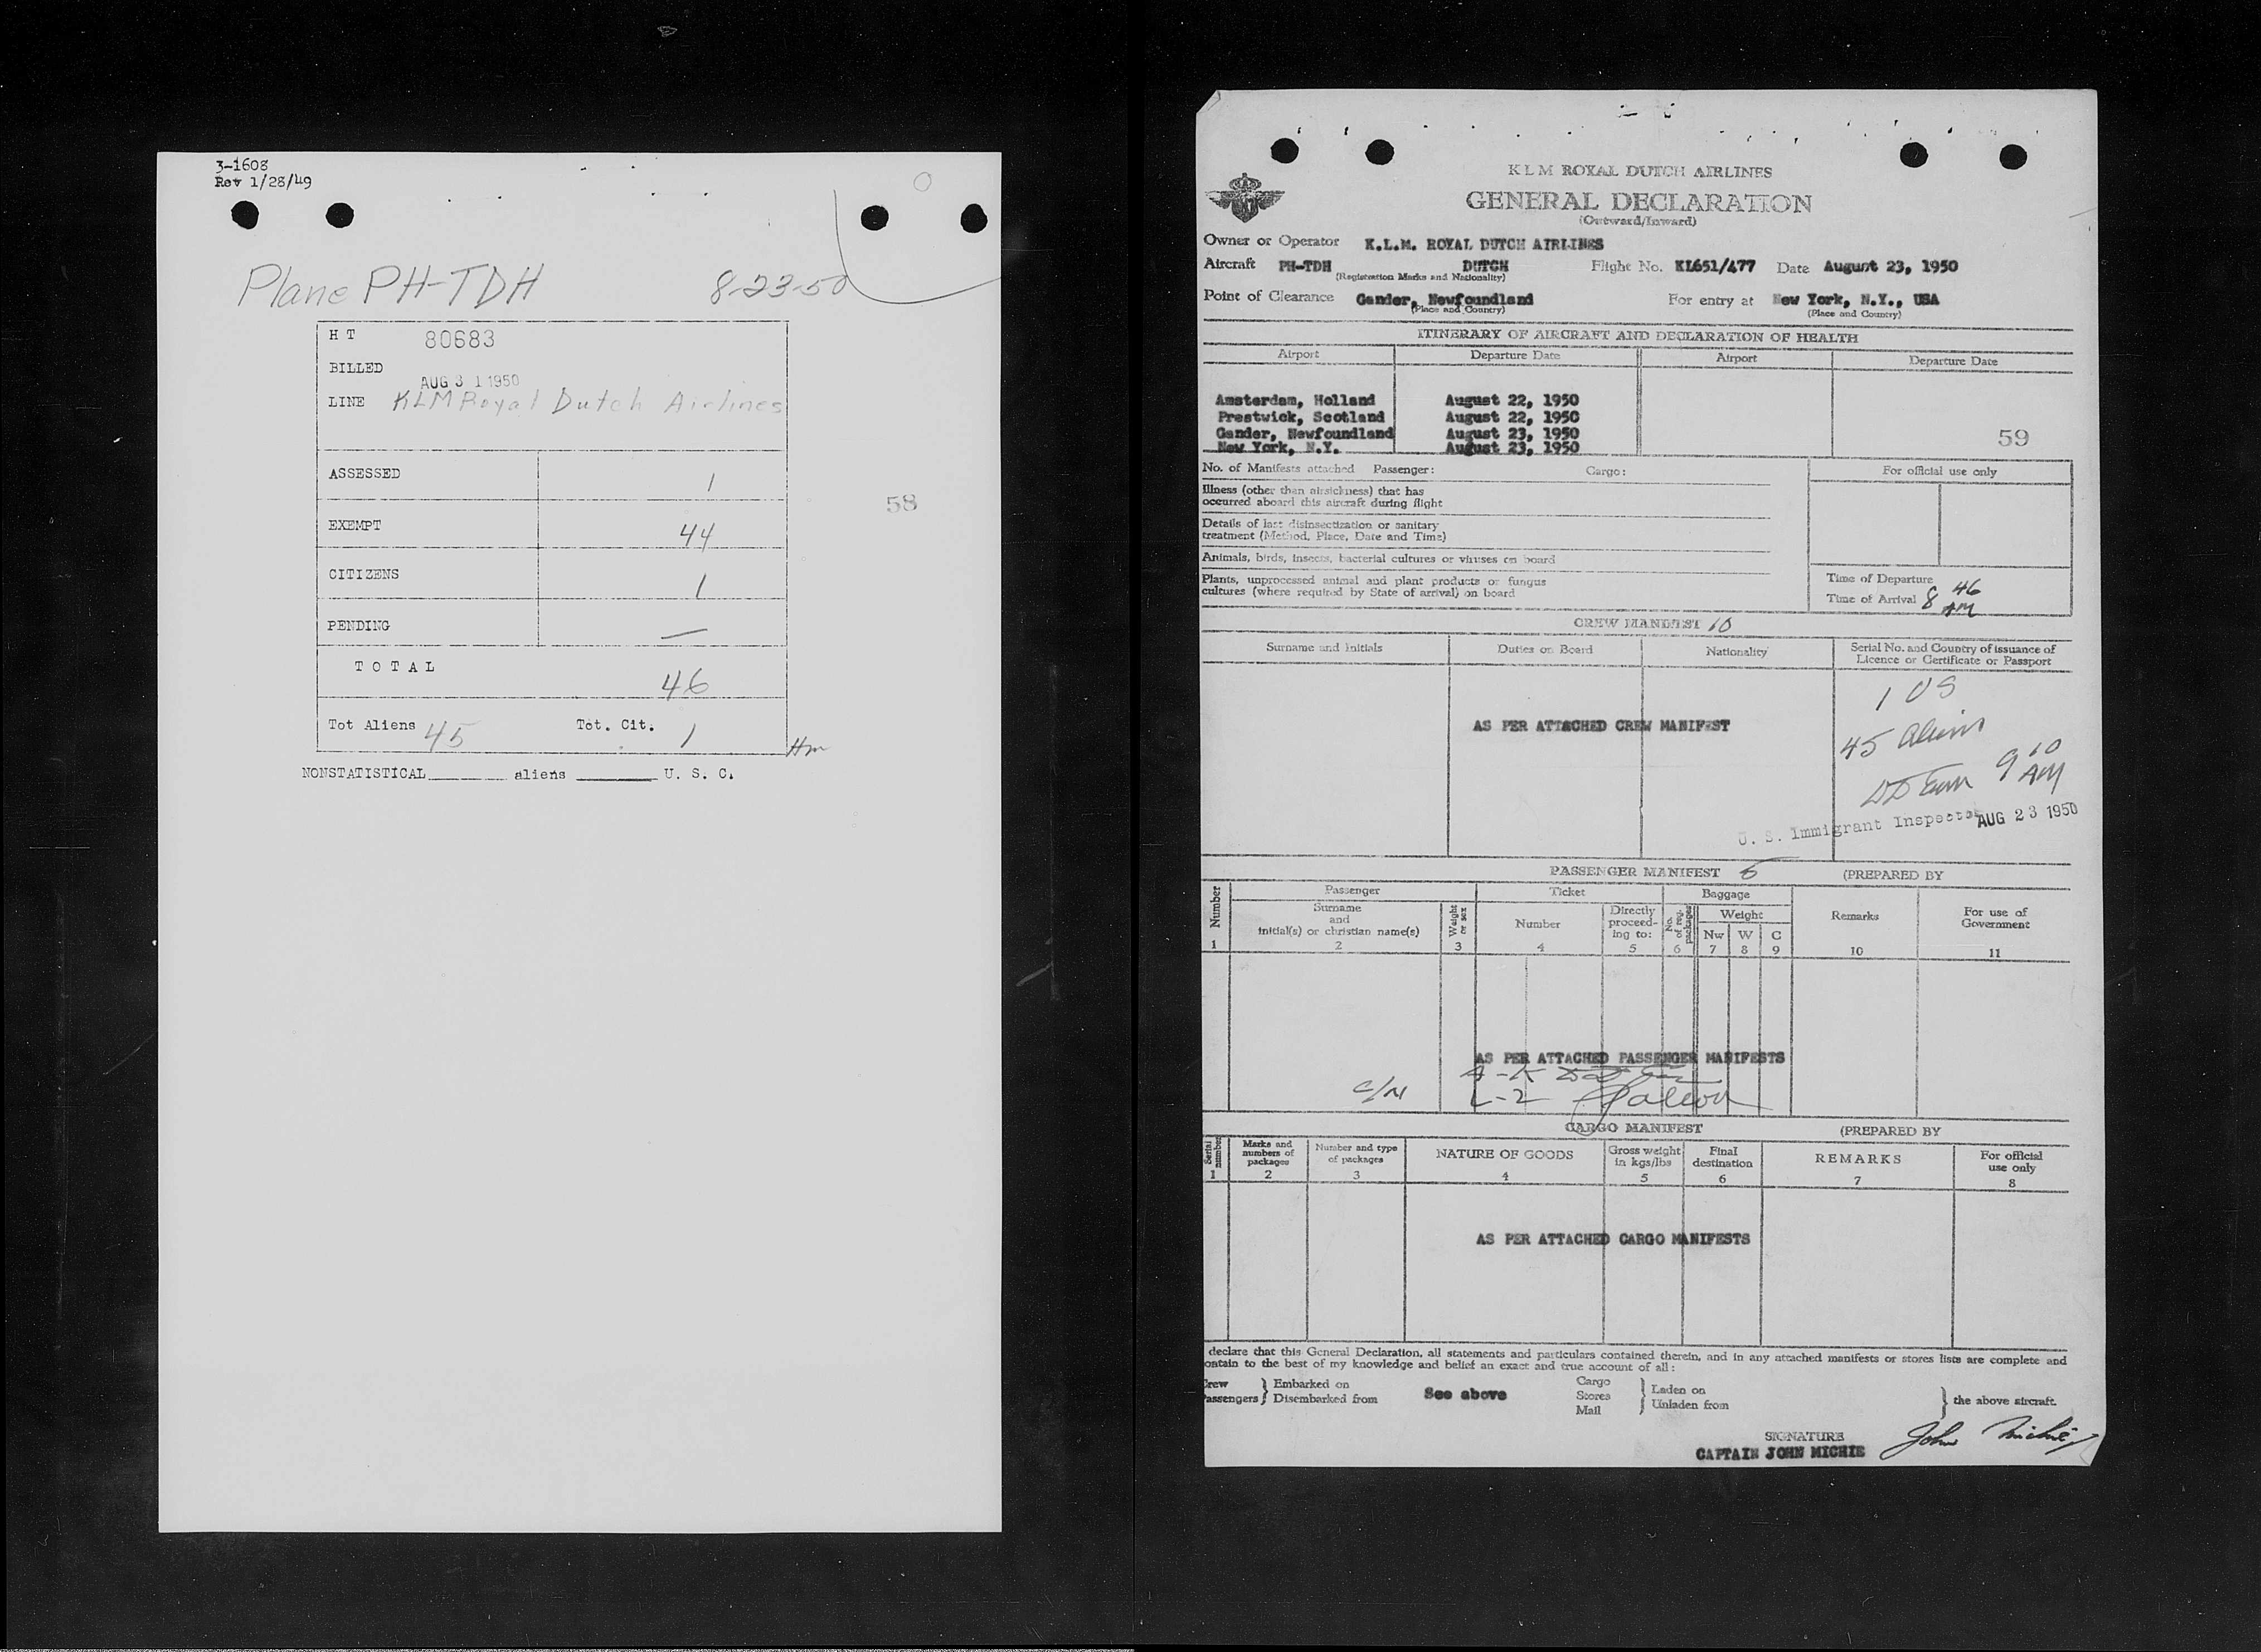 3-1608
Rev 1/28/49
Plane PH-TDH 8-23-50
H T 80683
BILLED
AUG 31 1950
LINE KLM Royal Dutch Airlines
ASSESSED 1
58
EXEMPT 44
CITIZENS 1
PENDING —
T O T A L 46
Tot Aliens 45 Tot. Cit. 1
Hm
NONSTATISTICAL________ aliens ________ U. S. C.
KLM ROYAL DUTCH AIRLINES
GENERAL DECLARATION
(Outward/Inward)
Owner or Operator K.L.M. ROYAL DUTCH AIRLINES
Aircraft PH-TDH DUTCH Flight No. KL651/477 Date August 23, 1950
(Registration Marks and Nationality)
Point of Clearance Gander, Newfoundland For entry at New York, N.Y., USA
(Place and Country) (Place and Country)
ITINERARY OF AIRCRAFT AND DECLARATION OF HEALTH
Airport Departure Date Airport Departure Date
Amsterdam, Holland August 22, 1950
Prestwick, Scotland August 22, 1950
Gander, Newfoundland August 23, 1950
59
New York, N.Y. August 23, 1950
No. of Manifests attached Passenger: Cargo: For official use only
Illness (other than airsickness) that has
occurred aboard this aircraft during flight
Details of last disinsectization or sanitary
treatment (Method, Place, Date and Time)
Animals, birds, insects, bacterial cultures or viruses on board
Plants, unprocessed animal and plant products or fungus
cultures (where required by State of arrival) on board
Time of Departure
Time of Arrival 8 46 AM
CREW MANIFEST 10
Surname and Initials Duties on Board Nationality Serial No. and Country of issuance of
Licence or Certificate or Passport
1 US
AS PER ATTACHED CREW MANIFEST
45 Aliens
9 10 AM
U. S. Immigrant Inspector AUG 23 1950
PASSENGER MANIFEST 6 (PREPARED BY
Number Passenger Ticket Baggage
Surname
and
initial(s) or christian name(s)
Weight or sex
Number
Directly
proceed-
ing to:
No. of reg. packages
Weight
Nw W C
Remarks
For use of
Government
1 2 3 4 5 6 7 8 9 10 11
AS PER ATTACHED PASSENGER MANIFESTS
A-K
L-Z
CARGO MANIFEST (PREPARED BY
Serial number
Marks and
numbers of
packages
Number and type
of packages
NATURE OF GOODS
Gross weight
in kgs/lbs
Final
destination
REMARKS
For official
use only
1 2 3 4 5 6 7 8
AS PER ATTACHED CARGO MANIFESTS
declare that this General Declaration, all statements and particulars contained therein, and in any attached manifests or stores lists are complete and
ontain to the best of my knowledge and belief an exact and true account of all:
Crew } Embarked on
Passengers } Disembarked from
See above
Cargo
Stores
Mail
Laden on
Unladen from
the above aircraft.
SIGNATURE John Michie
CAPTAIN JOHN MICHIE